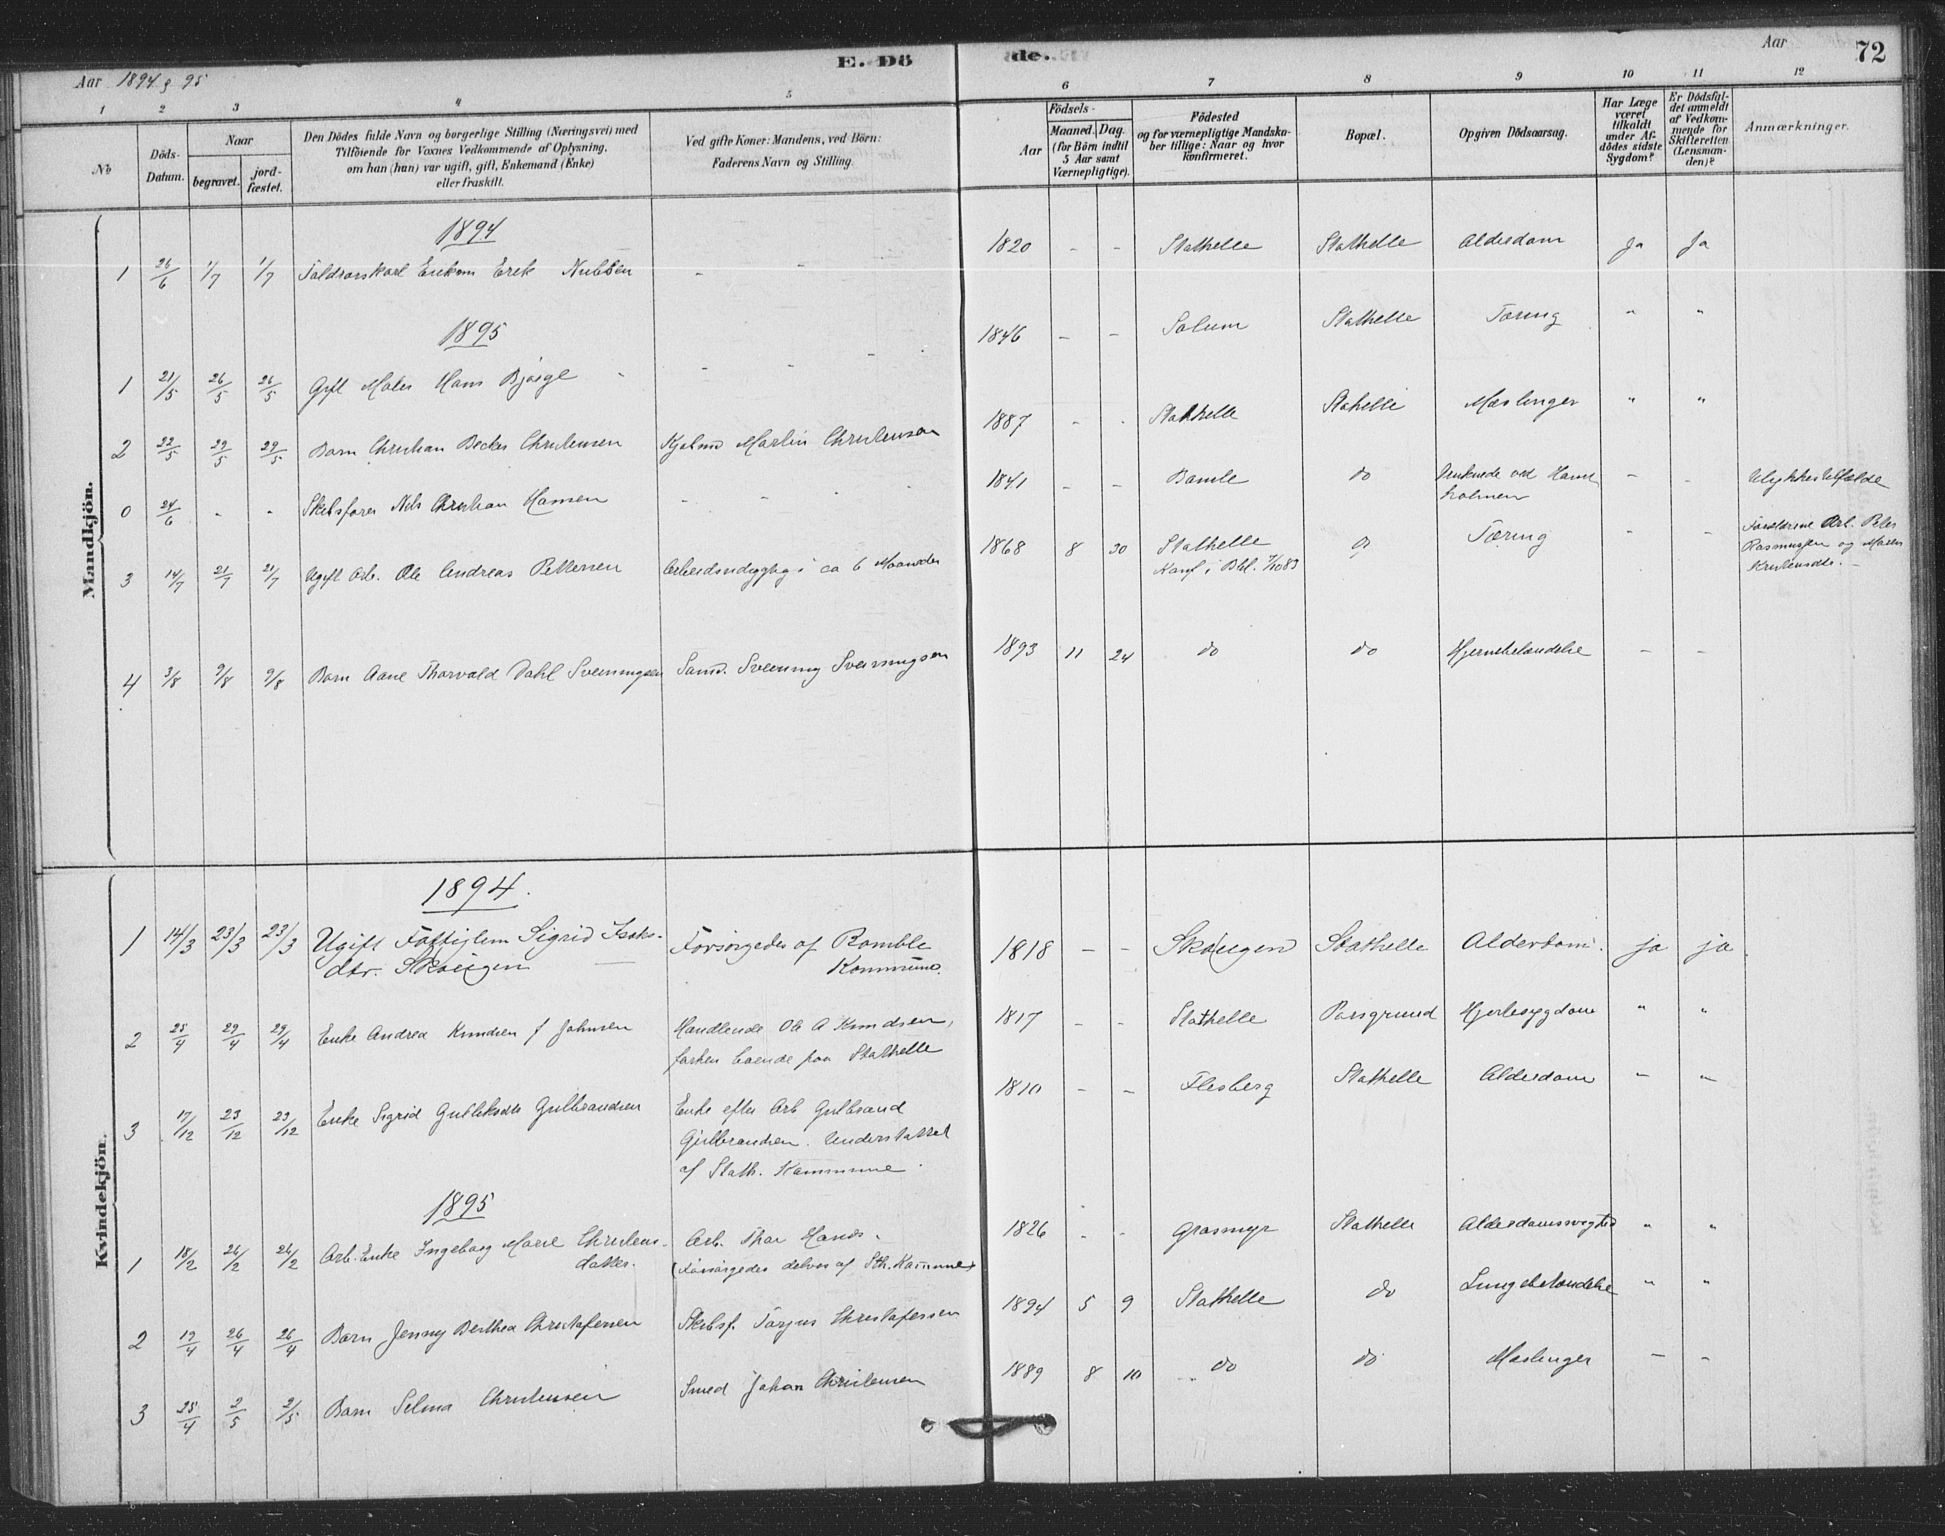 E. Dö de.
72
Aar 1894 & 95
Aar
1 2 3 4 5 6 7 8 9 10 11 12
No
Döds-Datum.
Naar
begravet.
jord-fæstet.
Den Dödes fulde Navn og borgerlige Stilling (Næringsvei) med
Tilföiende for Voxnes Vedkommende af Oplysning,
om han (hun) var ugift, gift, Enkemand (Enke)
eller fraskilt.
Ved gifte Koner: Mandens, ved Börn:
Faderens Navn og Stilling.
Aar
Födsels-
Maaned. Dag.
(for Börn indtil
5 Aar samt
Værnepligtige).
Födested
og for værnepligtige Mandska-
ber tillige: Naar og hvor
konfirmeret.
Bopæl.
Opgiven Dödsaarsag.
Har Læge
været
tilkaldt
under Af-
dödes sidste
Sygdom?
Er Dödsfal-
det anmeldt
af Vedkom-
mende for
Skifteretten
(Lensman-
den)?
Anmærkninger.
Mandkjön.
1894
1 26/6 1/7 1/7 Enkem Erik - - 1820 - - Stathelle Stathelle Alderdom Ja Ja
1895
1 21/5 26/5 26/5 Gift Maler Hans - - 1846 - - Solum Stathelle Tæring " "
2 22/5 29/5 29/5 Barn Christian Becker Christensen Martin Christensen 1887 - - Stathelle Stathelle Mæslinger " "
0 24/6 - - Skibsfører Nils Christian Hansen - - - 1841 - - Bamle do Druknede ved
holmen - - Ulykkestilfælde
3 14/7 21/7 21/7 Ugift Arb. Ole Andreas Pettersen Arbeidsudygtig i ca 6 Maaneder 1868 8 30 Stathelle
Konf i Tæring - - Forældrene Arb. Peter
Rasmussen og Maren
4 3/8 9/8 9/8 Barn Thorvald Dahl Sveinungsen Sveinung Sveinungsen 1893 11 24 do do Hjernebetændelse - -
Kvindekjön.
1894.
1 14/3 23/3 23/3 Ugift Fattiglem Sigrid Isaks-
dtr. Skougen Forsörgedes af Bamble
Kommune. 1818 - - Skougen Stathelle Alderdom. ja ja
2 25/4 29/4 29/4 Enke Andrea Knudsen f Johnsen Handlende Ole A Knudsen,
boende paa Stathelle 1817 - - Stathelle Porsgrund Hjertesygdom " "
3 17/12 23/12 23/12 Enke Sigrid Gulliksdtr Gulbrandsen Enke efter Arb Gulbrand
Gulbrandsen. Understøttet
af Stath. Kommune. 1810 - - Flesberg Stathelle Alderdom " "
1895
1 18/2 24/2 24/2 Arb. Enke Ingeborg Marie Christens-
datter. Arb. Thor Hans
(Forsørgedes delvis af Sth. Kommune) 1826 - - Grasmyr Stathelle Alderdomssvaghed " "
2 19/4 26/4 26/4 Barn Jenny Berthea Christofersen Skibsf. Torjus Christofersen 1894 5 9 Stathelle do Lungebetændelse " "
3 25/4 2/5 2/5 Barn Selma Christensen Smed Johan Christensen 1889 8 10 do do Mæslinger - -